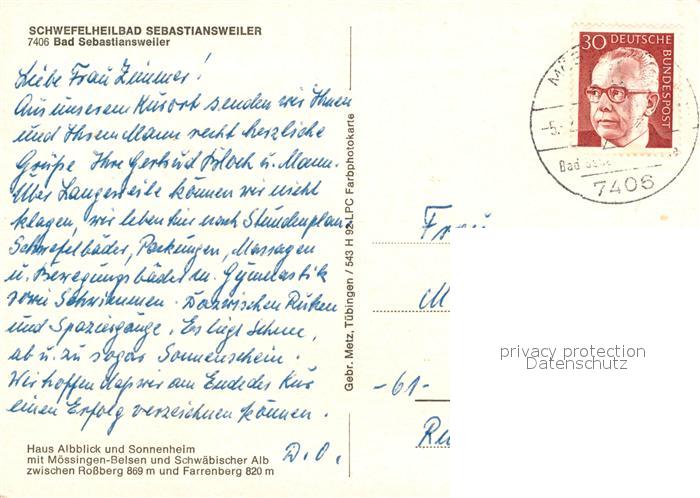 SCHWEFELHEILBAD SEBASTIANSWEILER
7406 Bad Sebastiansweiler
Liebe Frau Zimmer!
Aus unserem Kurort senden wir Ihnen
und Ihrem Mann recht herzliche
Grüße Ihre Gertrud Bloch u. Mann.
Über Langeweile können wir nicht
klagen, wir leben nur nach Stundenplan
Schwefelbäder, Packungen, Massagen
u. Bewegungsbäder m. Gymnastik
sowie Schwimmen. Dazwischen Ruhen
und Spaziergänge. Es liegt Schnee,
ab u. zu sogar Sonnenschein.
Wir hoffen daß wir am Ende der Kur
einen Erfolg verzeichnen können.
D.O.
Haus Albblick und Sonnenheim
mit Mössingen-Belsen und Schwäbischer Alb
zwischen Roßberg 869 m und Farrenberg 820 m
Gebr. Metz, Tübingen / 543 H 92 LPC Farbphotokarte
30 DEUTSCHE
BUNDESPOST
-5.
Bad
7406
Frau
M
-61-
privacy protection
Datenschutz